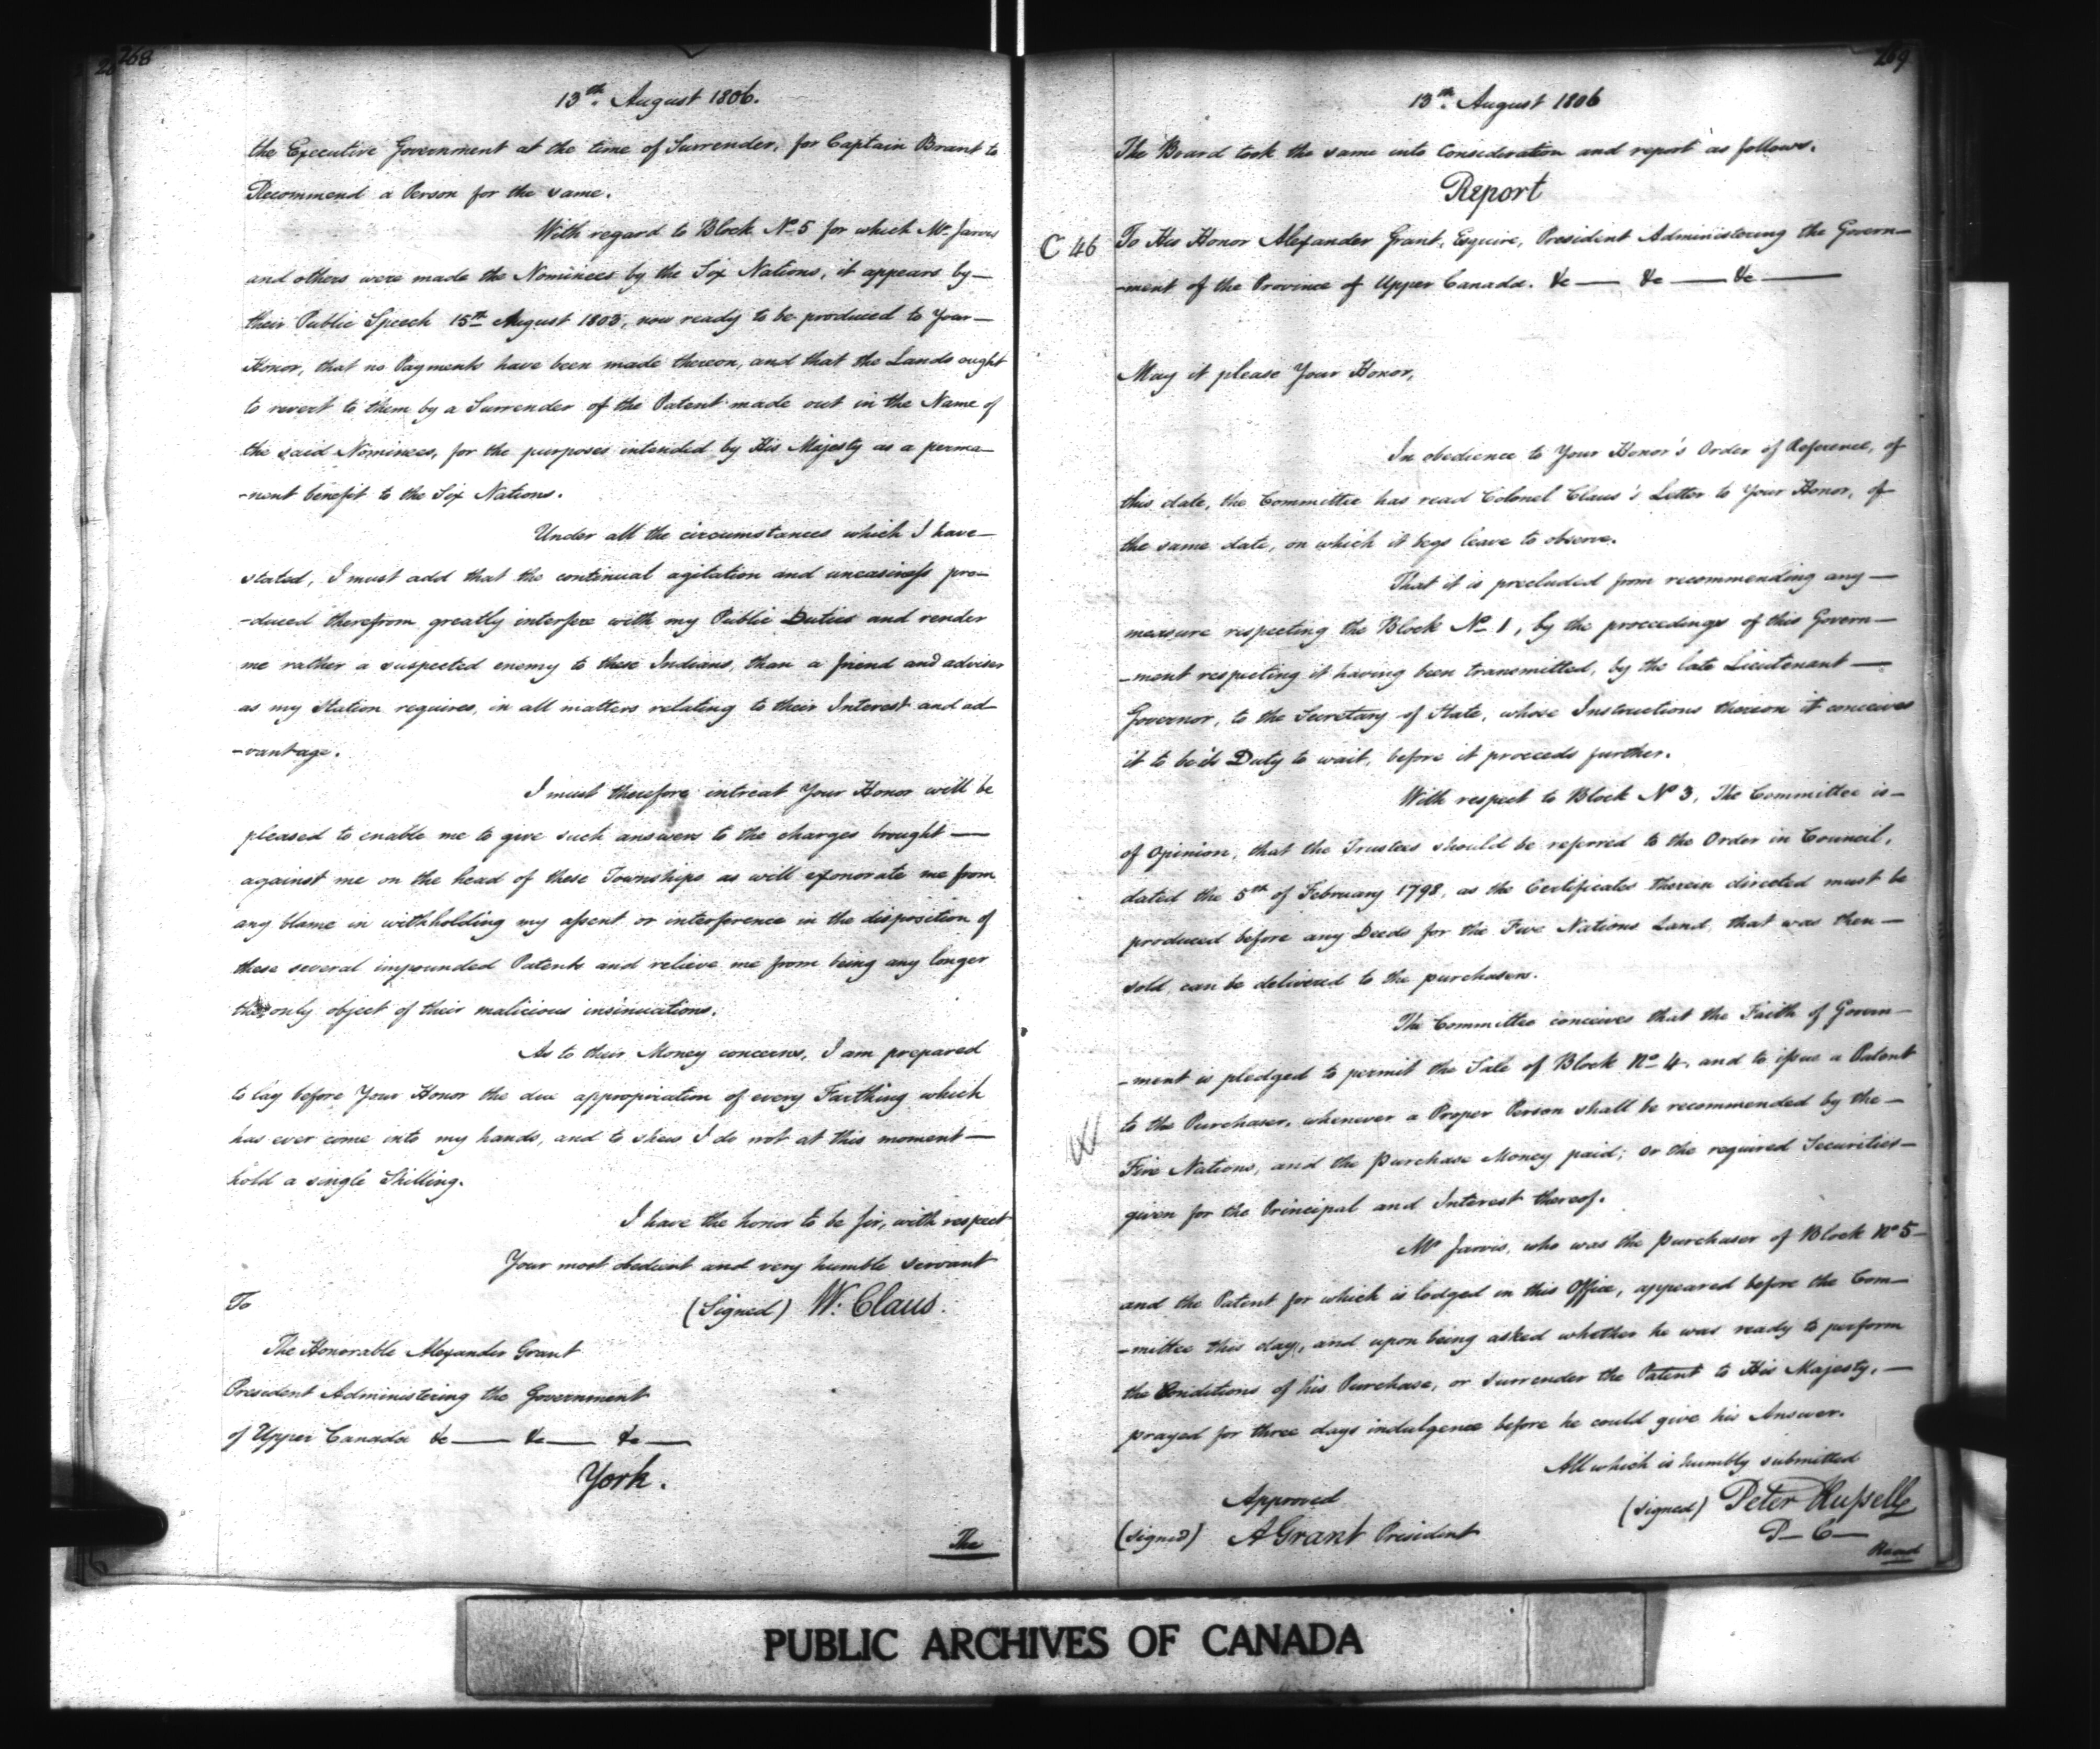 268
13th. August 1806.
the Executive Government at the time of Surrender, for Captain Brant to
Recommend a Person for the same.
With regard to Block No. 5 for which Mr. Jarvis
and others were made the Nominees by the Six Nations, it appears by—
their Public Speech 15th August 1803, now ready to be produced to Your—
Honor, that no Payments have been made thereon, and that the Lands ought
to revert to them by a Surrender of the Patent made out in the Name of
the said Nominees, for the purposes intended by His Majesty as a perma—
-nent benefit to the Six Nations.
Under all the circumstances which I have—
stated, I must add that the continual agitation and uneasiness pro—
-duced therefrom greatly interfere with my Public Duties and render
me rather a suspected enemy to these Indians, than a friend and adviser
as my Station requires, in all matters relating to their Interest and ad—
-vantage.
I must therefore intreat Your Honor will be
pleased to enable me to give such answers to the charges brought—
against me on the head of these Townships as will exonorate me from
any blame in withholding my assent or interference in the disposition of
these several impounded Patents and relieve me from being any longer
the only object of their malicious insinuations.
As to their Money concerns, I am prepared
to lay before Your Honor the due appropriation of every Farthing which
has ever come into my hands, and to shew I do not at this moment—
hold a single Shilling.
I have the honor to be Sir, with respect
Your most obedient and very humble servant
(Signed) W. Claus.
To
The Honorable Alexander Grant
President Administering the Government
of Upper Canada &c— &c— &c—
York.
The
269
13th. August 1806
The Board took the same into Consideration and report as follows.
Report
C 46
To His Honor Alexander Grant, Esquire, President Administering the Govern—
-ment of the Province of Upper Canada. &c— &c— &c—
May it please Your Honor,
In obedience to Your Honor's Order of Reference, of
this date, the Committee has read Colonel Claus's Letter to Your Honor, of
the same date, on which it begs leave to observe.
That it is precluded from recommending any—
measure respecting the Block No. 1, by the proceedings of this Govern—
-ment respecting it having been transmitted, by the late Lieutenant—
Governor, to the Secretary of State, whose Instructions thereon it conceives
it to be its Duty to wait, before it proceeds further.
With respect to Block No 3, The Committee is—
of Opinion, that the Trustees should be referred to the Order in Council,
dated the 5th of February 1798, as the Certificates therein directed must be
produced before any Deeds for the Five Nations Land, that was then—
sold, can be delivered to the purchasers.
The Committee conceives that the Faith of Govern—
-ment is pledged to permit the Sale of Block No. 4, and to issue a Patent
to the Purchaser, whenever a Proper Person shall be recommended by the—
Five Nations, and the Purchase Money paid; or the required Securities—
given for the Principal and Interest thereof.
Mr Jarvis, who was the Purchaser of Block No 5—
and the Patent for which is lodged in this Office, appeared before the Com—
-mittee this day, and upon being asked whether he was ready to perform
the Conditions of his Purchase, or Surrender the Patent to His Majesty,—
prayed for three days indulgence before he could give his Answer.
All which is humbly submitted
Approved
(signed) Peter Russell
(signed) A Grant President
P— C—
Read
PUBLIC ARCHIVES OF CANADA